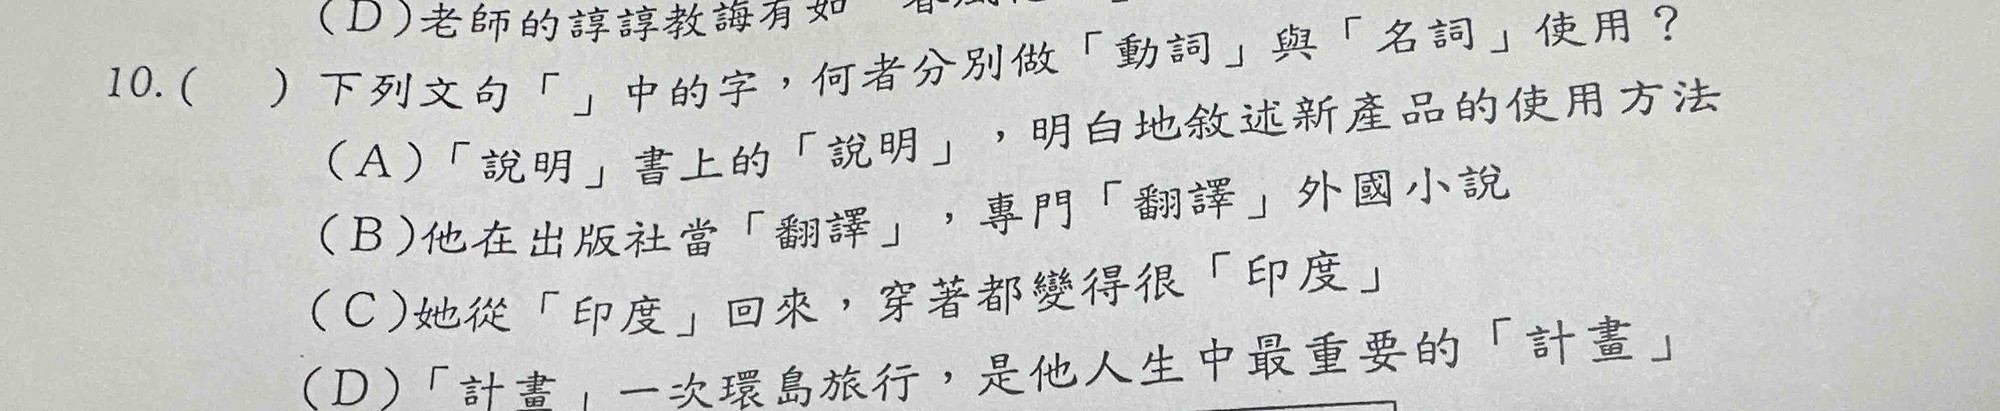 (D)老師的諄諄教誨有如「春風
10.(　　) 下列文句「」中的字，何者分別做「動詞」與「名詞」使用？
(A)「說明」書上的「說明」，明白地敘述新產品的使用方法
(B)他在出版社當「翻譯」，專門「翻譯」外國小說
(C)她從「印度」回來，穿著都變得很「印度」
(D)「計畫」一次環島旅行，是他人生中最重要的「計畫」